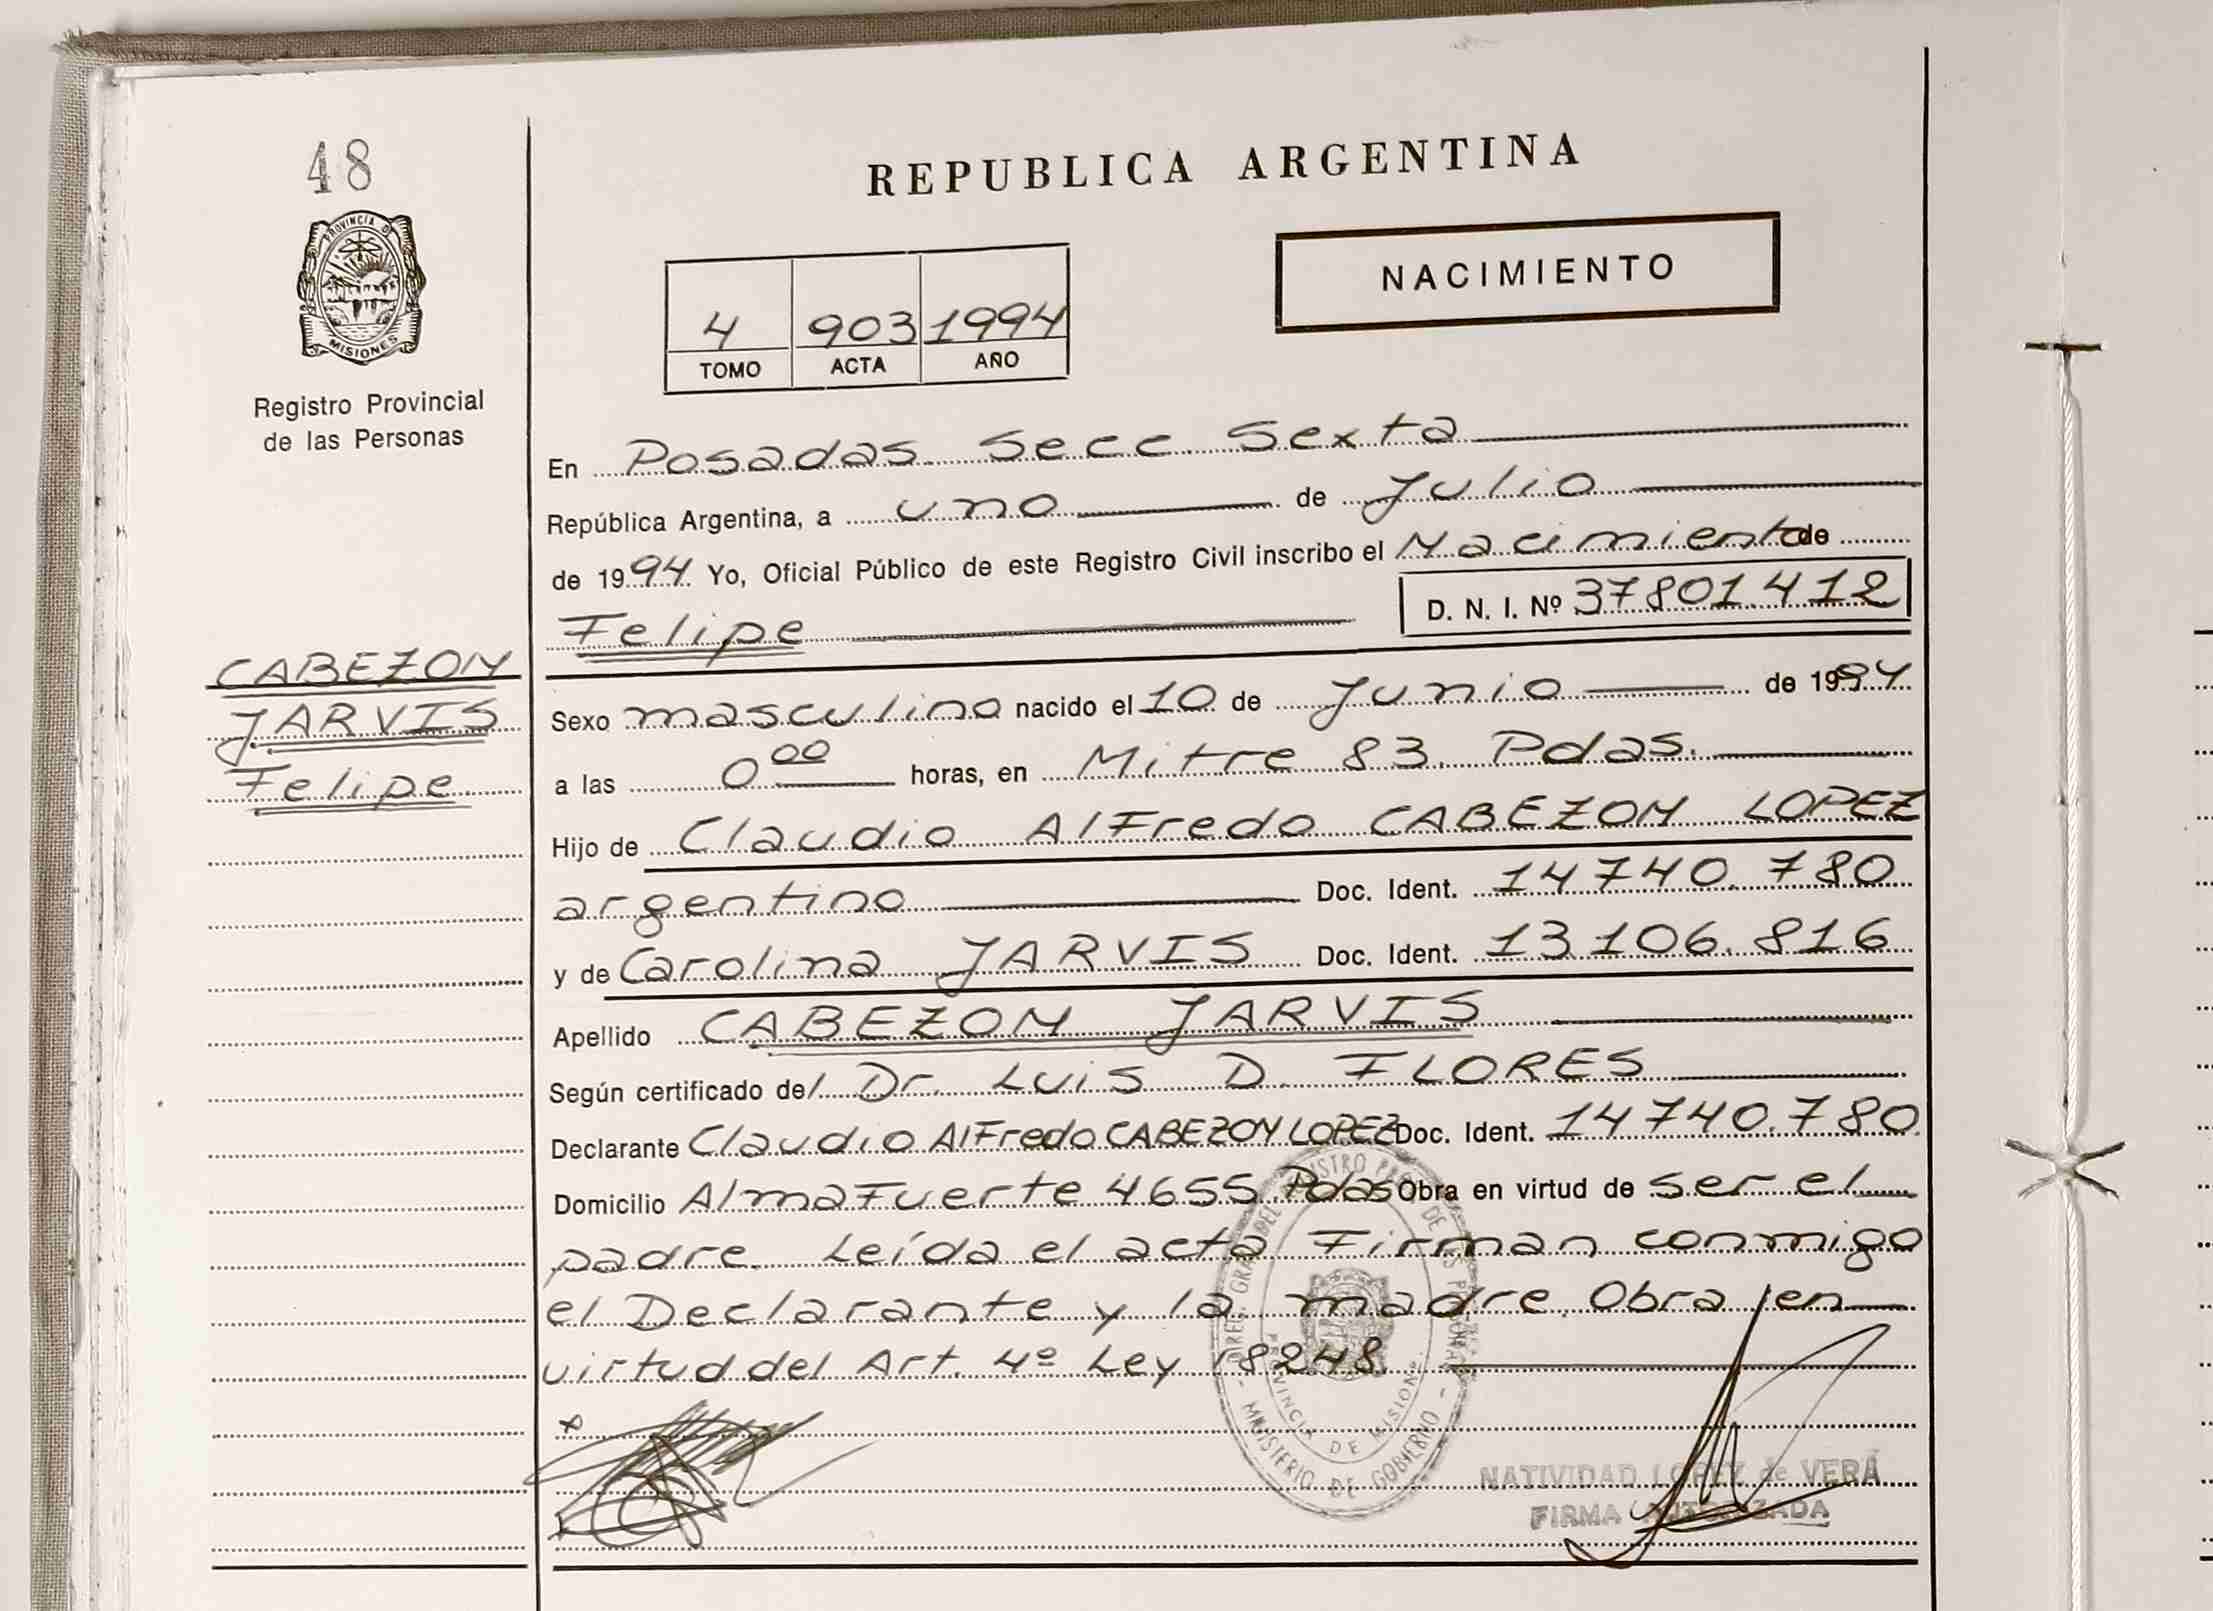 48
PROVINCIA D
MISIONES
Registro Provincial
de las Personas
CABEZON
JARVIS
Felipe
REPUBLICA ARGENTINA
NACIMIENTO
4 903 1994
TOMO ACTA AÑO
En Posadas Secc Sexta
República Argentina, a uno de Julio
de 1994 Yo, Oficial Público de este Registro Civil inscribo el Nacimiento de
Felipe D. N. I. Nº 37801.412
Sexo masculino nacido el 10 de Junio de 1994
a las 0⁰⁰ horas, en Mitre 83. Pdas.
Hijo de Claudio Alfredo CABEZON LOPEZ
argentino Doc. Ident. 14740.780
y de Carolina JARVIS Doc. Ident. 13.106.816
Apellido CABEZON JARVIS
Según certificado del Dr. Luis D. FLORES
Declarante Claudio Alfredo CABEZON LOPEZ Doc. Ident. 14740.780
Domicilio Almafuerte 4655 Pdas Obra en virtud de ser el
padre. Leída el acta Firman conmigo
el Declarante y la madre. Obra en
virtud del Art. 4º Ley 18248.
DIREC. GRAL. DEL REGISTRO PROV. DE LAS PERSONAS
PROVINCIA DE MISIONES
- MINISTERIO DE GOBIERNO -
NATIVIDAD LOPEZ de VERA
FIRMA AUTORIZADA